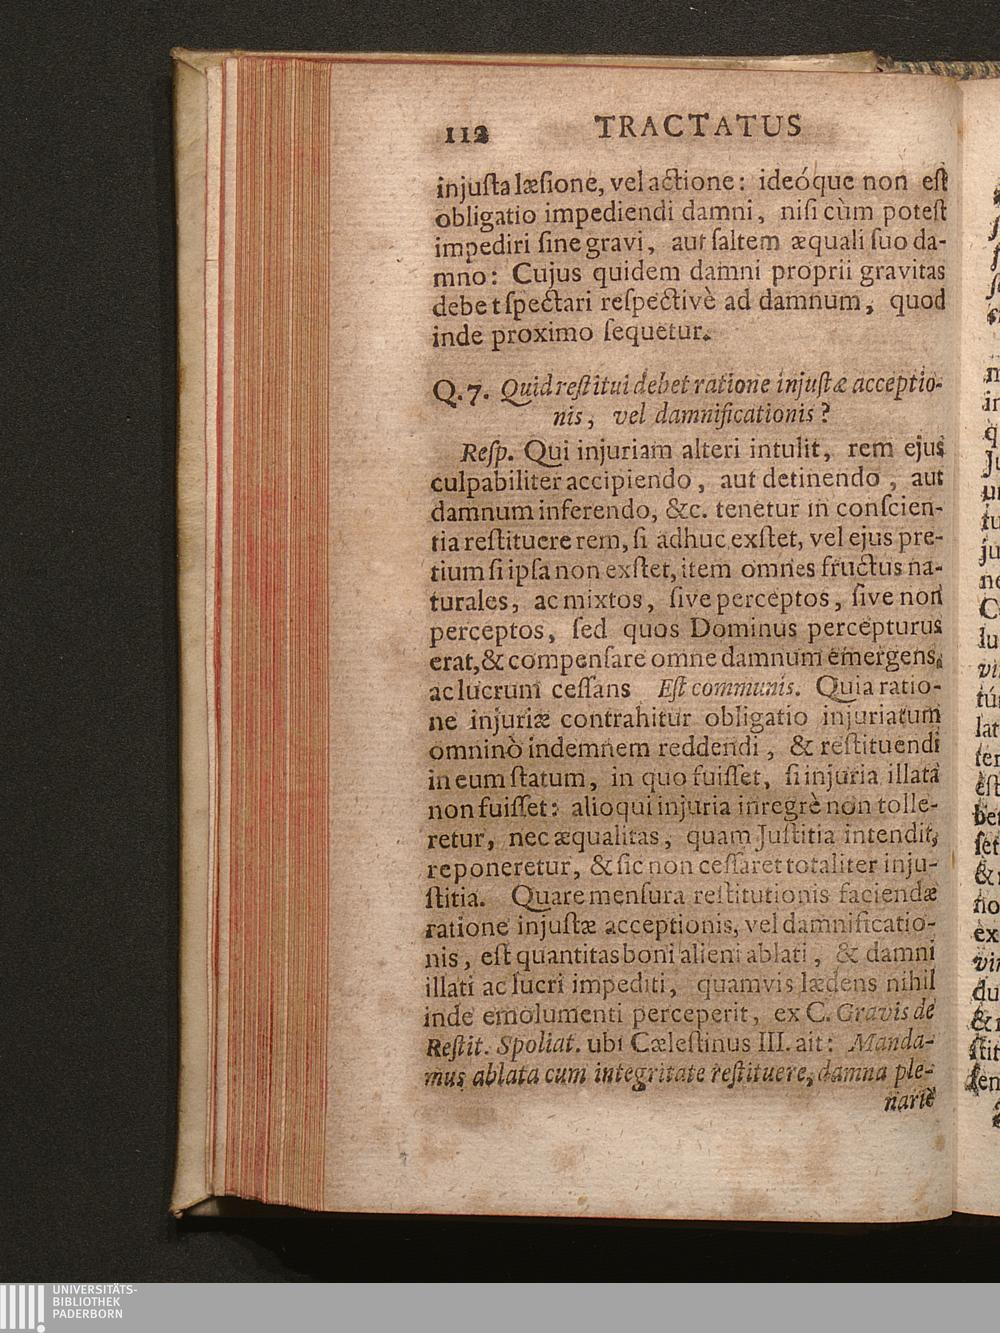 112 TRACTATUS
injuſta læſione, vel actione: ideóque non eſt
obligatio impediendi damni, niſi cùm poteſt
impediri ſine gravi, aut ſaltem æquali ſuo da-
mno: Cujus quidem damni proprii gravitas
debet ſpectari reſpectivè ad damnum, quod
inde proximo ſequetur.
Q. 7. Quid reſtitui debet ratione injuſtæ acceptio-
nis, vel damnificationis?
Reſp. Qui injuriam alteri intulit, rem ejus
culpabiliter accipiendo, aut detinendo, aut
damnum inferendo, &c. tenetur in conſcien-
tia reſtituere rem, ſi adhuc exſtet, vel ejus pre-
tium ſi ipſa non exſtet, item omnes fructus na-
turales, ac mixtos, ſive perceptos, ſive non
perceptos, ſed quos Dominus percepturus
erat, & compenſare omne damnum emergens,
ac lucrum ceſſans Eſt communis. Quia ratio-
ne injuriæ contrahitur obligatio injuriatum
omninò indemnem reddendi, & reſtituendi
in eum ſtatum, in quo fuiſſet, ſi injuria illata
non fuiſſet: alioqui injuria integrè non tolle-
retur, nec æqualitas, quam Juſtitia intendit,
reponeretur, & ſic non ceſſaret totaliter inju-
ſtitia. Quare menſura reſtitutionis faciendæ
ratione injuſtæ acceptionis, vel damnificatio-
nis, eſt quantitas boni alieni ablati, & damni
illati ac lucri impediti, quamvis lædens nihil
inde emolumenti perceperit, ex C. Gravis de
Reſtit. Spoliat. ubi Cæleſtinus III. ait: Manda-
mus ablata cum integritate reſtituere, damna ple-
nariè
UNIVERSITÄTS-
BIBLIOTHEK
PADERBORN